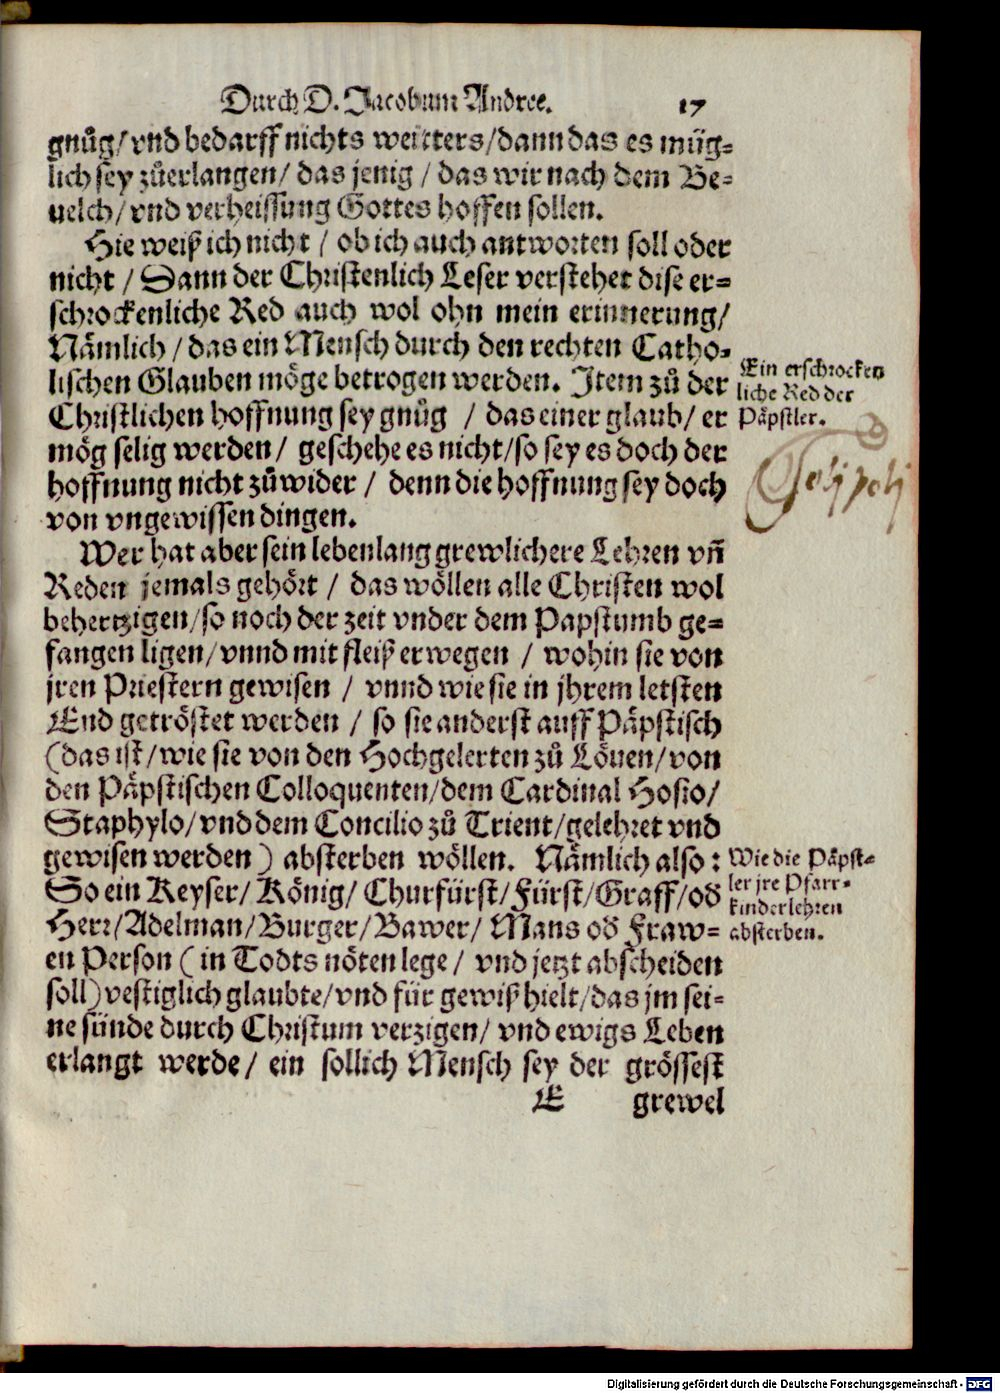 Durch D. Jacobum Andree. 17
gnůg/ vnd bedarff nichts weitters/ dann das es müg-
lich sey zůerlangen/ das jenig / das wir nach dem Be-
uelch/ vnd verheissung Gottes hoffen sollen.
Hie weiß ich nicht / ob ich auch antworten soll oder
nicht / Dann der Christenlich Leser verstehet dise er-
schrockenliche Red auch wol ohn mein erinnerung/
Nämlich / das ein Mensch durch den rechten Catho-
lischen Glauben möge betrogen werden. Item zů der
Christlichen hoffnung sey gnůg / das einer glaub/ er
mög selig werden/ geschehe es nicht/ so sey es doch der
hoffnung nicht zůwider / denn die hoffnung sey doch
von vngewissen dingen.
Ein erschrocken
liche Red der
Päpstler.
Wer hat aber sein lebenlang grewlichere Lehren vñ
Reden jemals gehört / das wöllen alle Christen wol
behertzigen/ so noch der zeit vnder dem Papstumb ge-
fangen ligen/ vnnd mit fleiß erwegen / wohin sie von
jren Priestern gewisen / vnnd wie sie in jhrem letsten
End getröstet werden / so sie anderst auff Päpstisch
(das ist/ wie sie von den Hochgelerten zů Löuen/ von
den Päpstischen Colloquenten/ dem Cardinal Hosio/
Staphylo/ vnd dem Concilio zů Trient/ gelehret vnd
gewisen werden) absterben wöllen. Nämlich also:
So ein Keyser/ König/ Churfürst/ Fürst/ Graff/ od
Herr/ Adelman/ Burger/ Bawer/ Mans od Fraw-
en Person (in Todts nöten lege / vnd jetzt abscheiden
soll) vestiglich glaubte/ vnd für gewiß hielt/ das jm sei-
ne sünde durch Christum verzigen/ vnd ewigs Leben
erlangt werde/ ein sollich Mensch sey der grössest
Wie die Päpst-
ler jre Pfarr-
kinder lehren
absterben.
E grewel
Digitalisierung gefördert durch die Deutsche Forschungsgemeinschaft - DFG